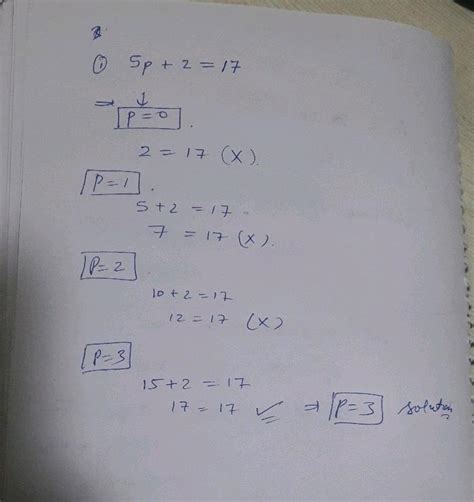 ① 5p + 2 = 17
⇒ ↓
p = 0 .
2 = 17 (X).
P = 1 .
5 + 2 = 17
7 = 17 (X).
P = 2
10 + 2 = 17
12 = 17 (X)
P = 3
15 + 2 = 17
17 = 17 ✓ ⇒ P = 3 solution